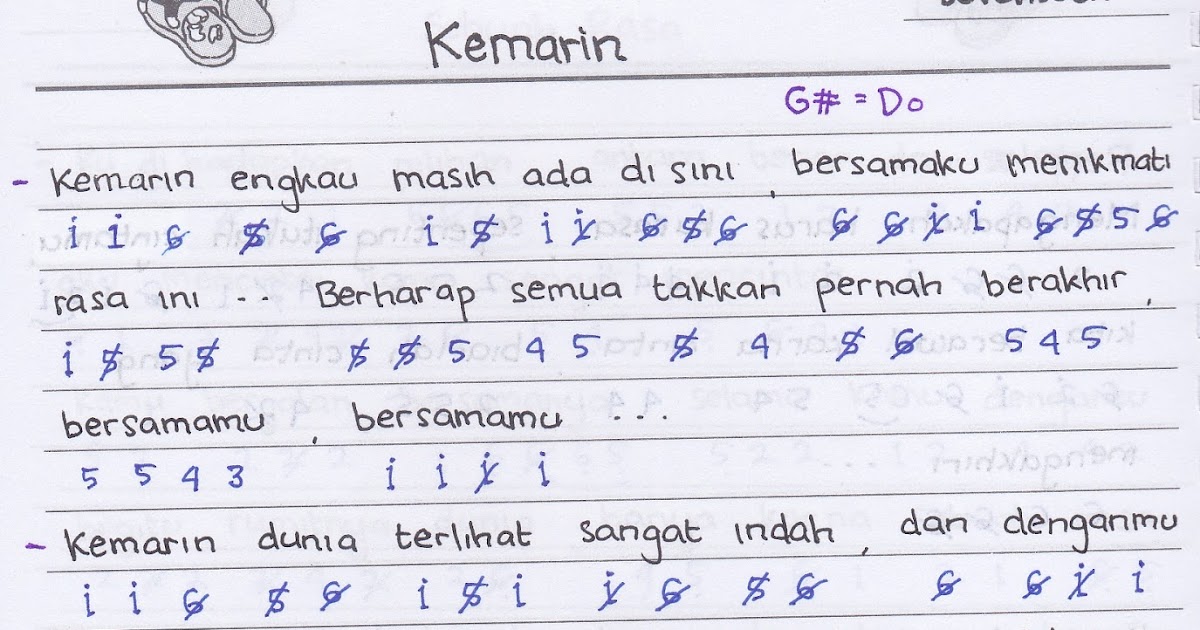 Kemarin
G# = Do
- Kemarin engkau masih ada di sini , bersamaku menikmati
i i 6̸ 5̸ 6̸ i 5̸ i i̸ 6̸ 5̸ 6̸ 6̸ 6̸ i̸ i 6̸ 5̸ 5 6̸
rasa ini ... Berharap semua takkan pernah berakhir ,
i 5̸ 5 5̸ 5̸ 5̸ 5 4 5 5̸ 4 5̸ 6̸ 5 4 5
bersamamu , bersamamu ...
5 5 4 3 i i i̸ i
- Kemarin dunia terlihat sangat indah , dan denganmu
i i 6̸ 5̸ 6̸ i 5̸ i i̸ 6̸ 5̸ 6̸ 6̸ 6̸ i̸ i